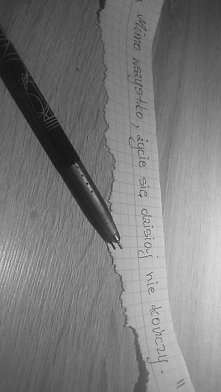 " Mimo wszystko, życie się dzisiaj nie kończy. "